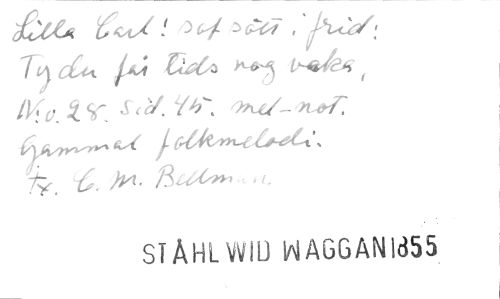 Lilla Carl! sof sött i frid:
Ty du får tids nog vaka,
No. 28. Sid. 45. mel-not.
Gammal folkmelodi.
Tx. C. M. Bellman.
STÅHL WID WAGGAN 1855